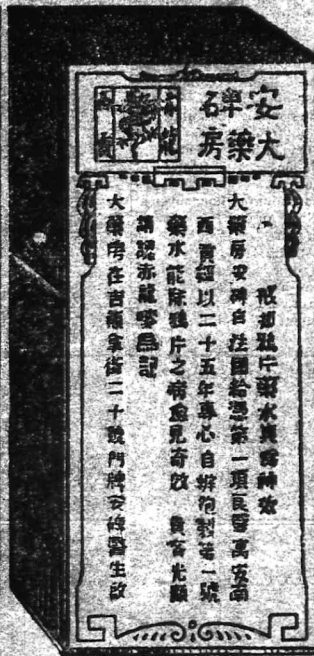 安碑石
大藥房
赤龍
戒鴉片藥水真神效
大藥房安碑自法國給憑第一項良醫寓安南
西貢經以二十五年專心自辦炮製第一號
藥水能除鴉片之病愈見奇效 貴客光顧
請認赤龍嘜為記
大藥房在吉拿街二十號門牌安碑醫生啟